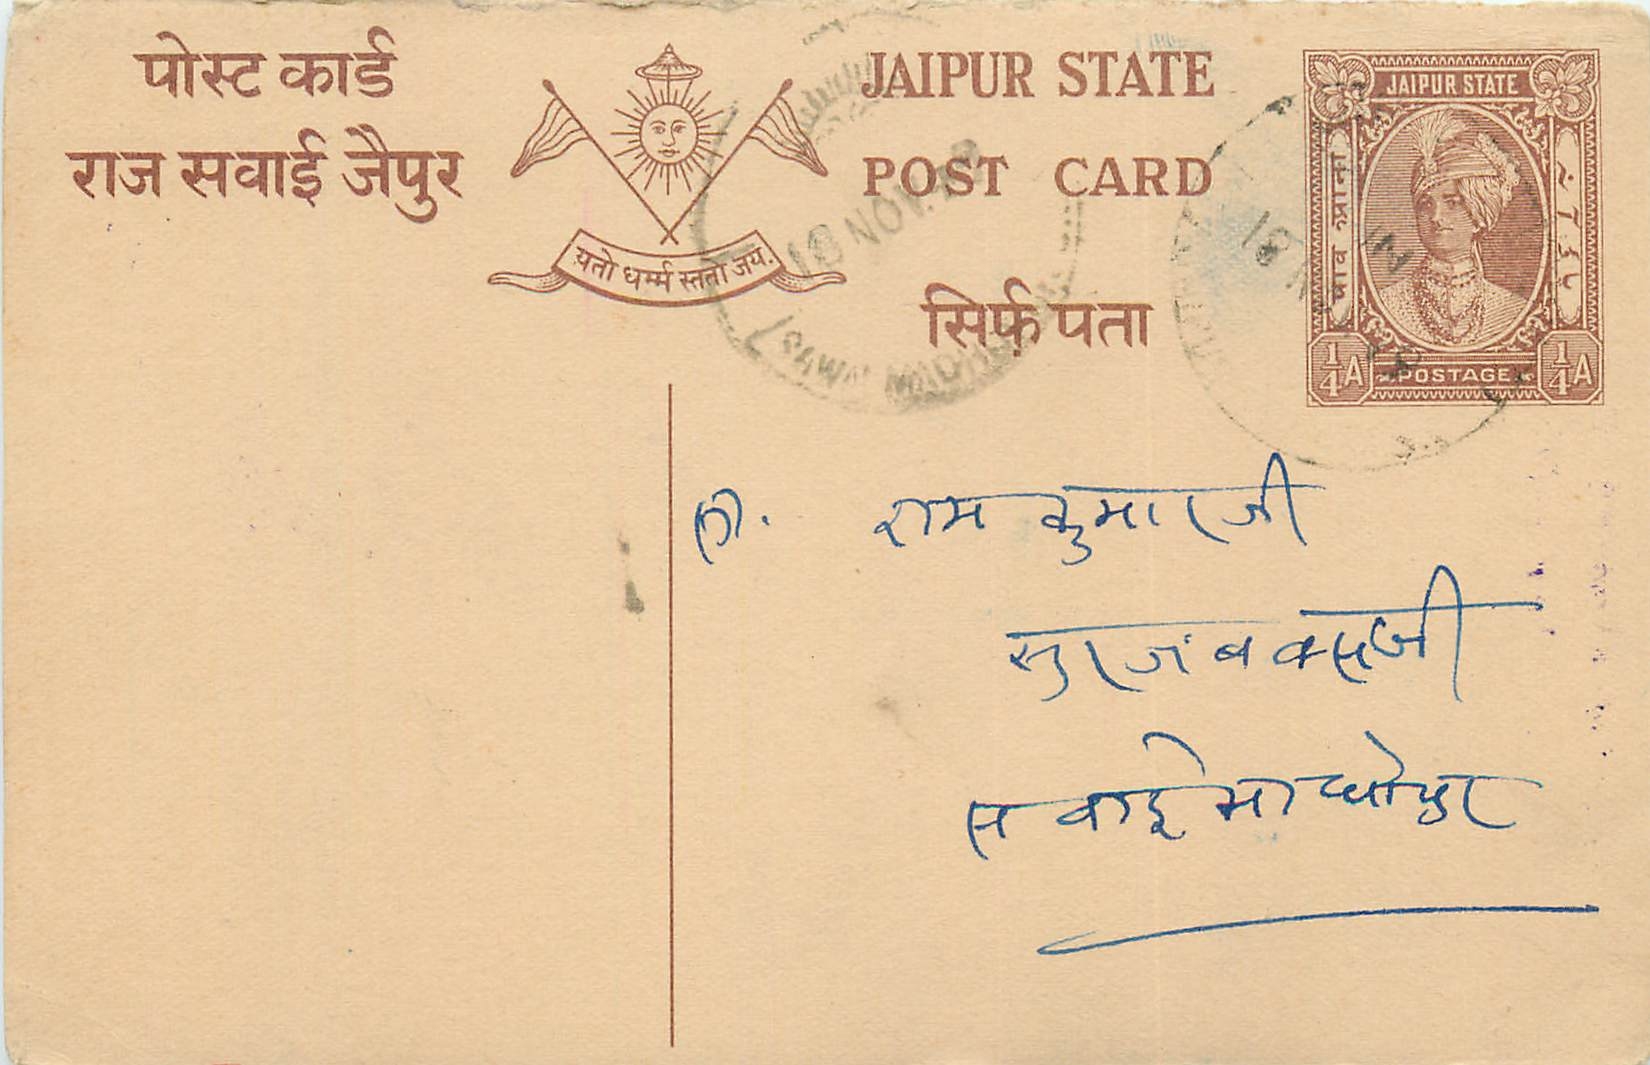 पोस्ट कार्ड
राज सवाई जैपुर
यतो धर्म्म स्ततो जय.
JAIPUR STATE
POST CARD
सिर्फ़ पता
JAIPUR STATE
पाव आना
1/4 A POSTAGE 1/4 A
18 NOV.
SAWAI MADHO
18
रामकुमारजी
सुरजबक्सजी
सवाईमाधोपुर